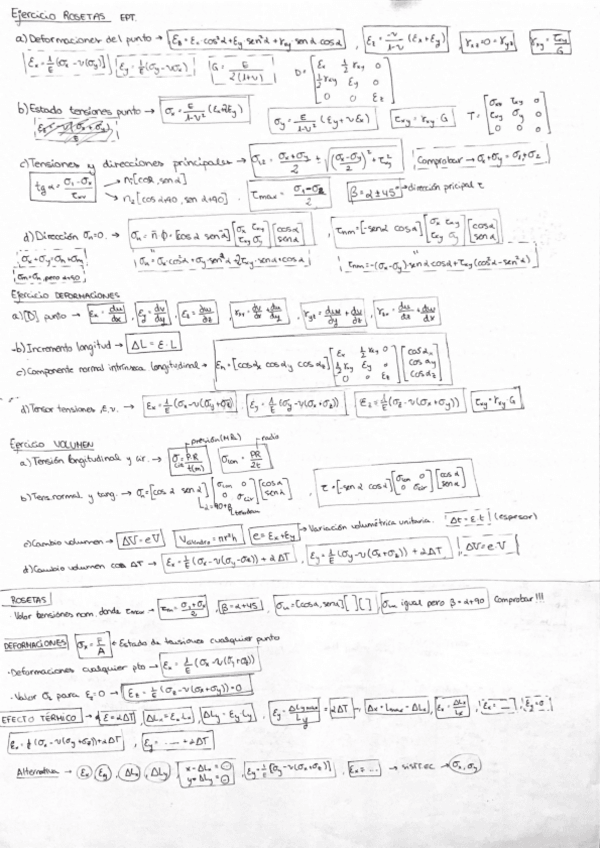 Ejercicio ROSETAS EPT.
a) Deformaciones del punto → εθ = εx·cos²α + εy sen²α + γxy sen α cos α , εz = -ν/(1-ν) (εx + εy) , γxz = 0 = γyz , γxy = τxy/G
εx = 1/E (σx - ν(σy)) εy = 1/E (σy - νσx) G = E/2(1+ν) D = [εx ½γxy 0; ½γxy εy 0; 0 0 εz]
b) Estado tensiones punto → σx = E/(1-ν²) (εx + νεy) σy = E/(1-ν²) (εy + νεx) τxy = γxy·G T = [σx τxy 0; τxy σy 0; 0 0 0]
c) Tensiones y direcciones principales → σ1,2 = (σx + σy)/2 ± √((σx - σy)/2)² + τxy² Comprobar → σx + σy = σ1 + σ2
tg α = (σ1 - σx)/τxy → n1[cos α, sen α]
→ n2[cos α+90, sen α+90] τmax = (σ1 - σ2)/2 β = α ± 45 → dirección pricipal τ
d) Dirección σn = 0. → [cos α sen α][σx τxy; τxy σy][cos α; sen α] , τnm = [-sen α cos α][σx τxy; τxy σy][cos α; sen α]
σx + σy = σn + σm σn = σx·cos²α + σy sen²α + 2τxy·sen α cos α
σm = σn pero α+90 τnm = -(σx - σy)·sen α cos α + τxy (cos²α - sen²α)
Ejercicio DEFORMACIONES
a) [D] punto → εx = du/dx , εy = dv/dy , εz = dw/dz , γxy = dv/dx + du/dy , γyz = dw/dy + dv/dz , γxz = du/dz + dw/dx
b) Incremento longitud → ΔL = ε·L
c) Componente normal intrínseca longitudinal → εn = [cos αx cos αy cos αz][εx ½γxy 0; ½γxy εy 0; 0 0 εz][cos αx; cos αy; cos αz]
d) Tensor tensiones, E, ν. → εx = 1/E (σx - ν(σy + σz)) εy = 1/E (σy - ν(σx + σz)) εz = 1/E (σz - ν(σx + σy)) τxy = γxy·G
Ejercicio VOLUMEN
presión (MPa) radio
a) Tensión longitudinal y cir. → σcir = P·R/t(m) σlon = PR/2t
b) Tens. normal y tang. → σn = [cos α sen α][σlon 0; 0 σcir][cos α; sen α] , τ = [-sen α cos α][σlon 0; 0 σcir][cos α; sen α]
c) Cambio volumen → ΔV = eV Vcilindro = πr²h e = εx + εy → Variación volumétrica unitaria. Δt = ε·t (espesor)
d) Cambio volumen con ΔT → εx = 1/E (σx - ν(σy + σz)) + αΔT , εy = 1/E (σy - ν(σx + σz)) + αΔT ΔV = e·V
ROSETAS
· Valor tensiones nom. donde τmax → σm = (σ1 + σ2)/2 , β = α+45 , σn = [cos α, sen α][ ][ ] σm igual pero β = α+90 Comprobar!!!
DEFORMACIONES σx = F/A ← Estado de tensiones cualquier punto
· Deformaciones cualquier pto → εx = 1/E (σx - ν(σy + σz))
· Valor σz para εz = 0 → εz = 1/E (σz - ν(σx + σy)) = 0
EFECTO TÉRMICO → ε = αΔT , ΔLx = εx Lx , ΔLy = εy Ly
εx = 1/E (σx - ν(σy + σz)) + αΔT , εy = ..... + αΔT
Alternativa → εx εy , ΔLx , ΔLy εy = 1/E [σy - ν(σx + σz)] , εx = ... → sist ec → σx, σy